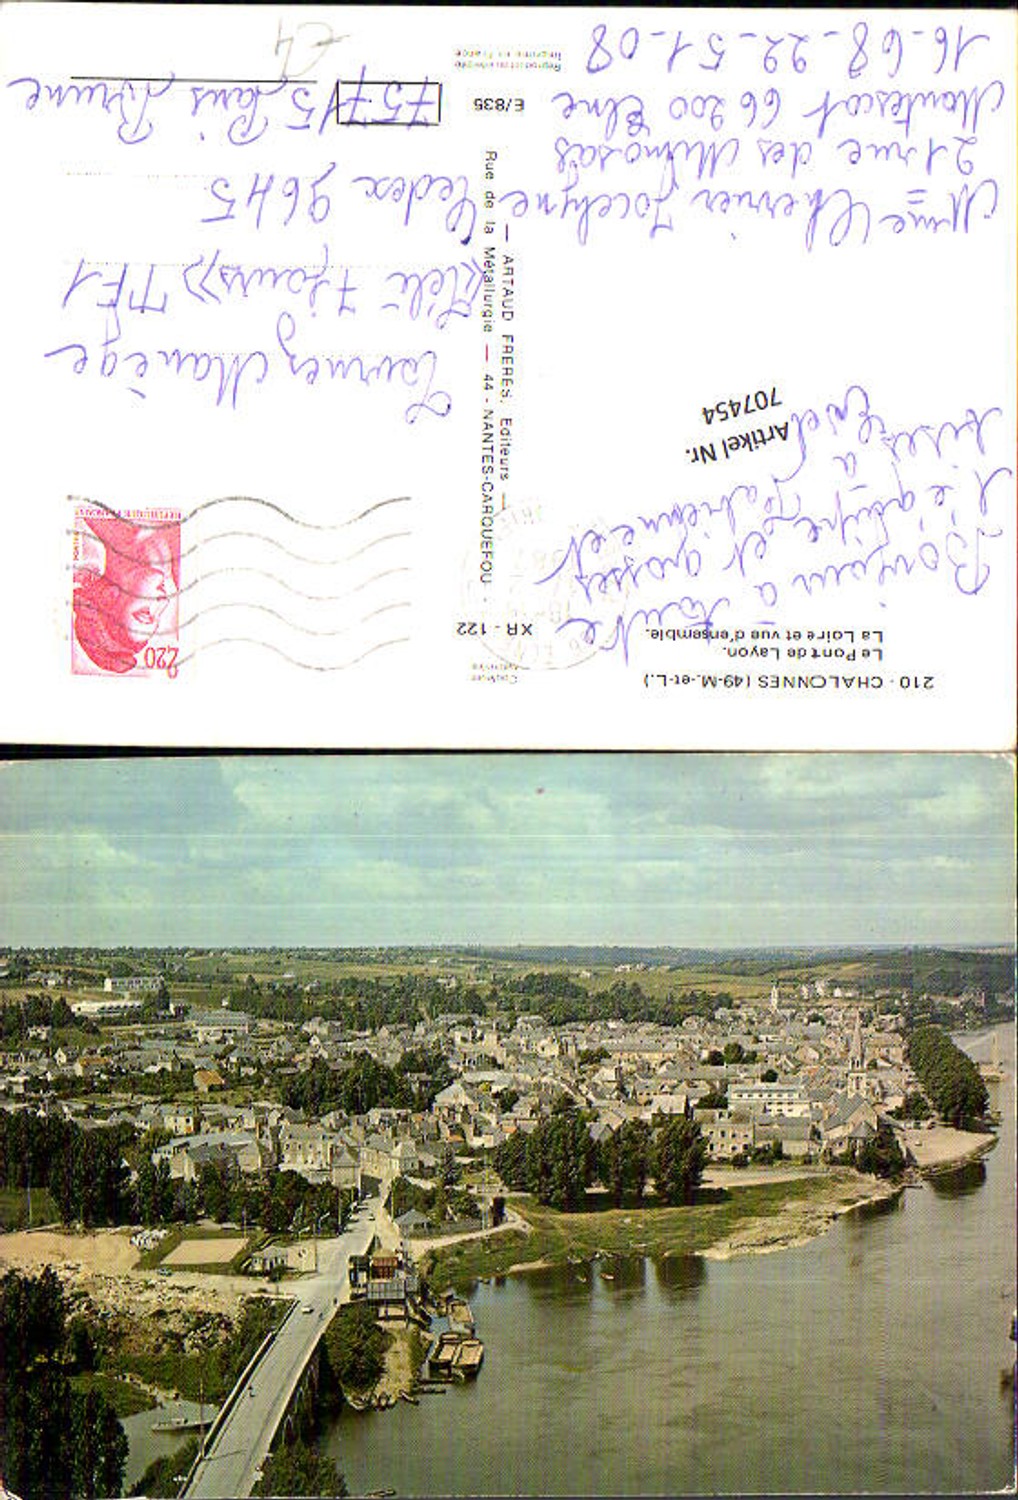 210 - CHALONNES (49-M.-et-L.)
Le Pont de Layon.
La Loire et vue d'ensemble.
Bonjour à toute
l'équipe et grosses
bises à Fabienne et
Artikel Nr.
707454
Mme Cherrier Jocelyne
21 rue des Mimosas
Montescot 66200 Elne
16-68-22-51-08
Couleurs
XR - 122
— ARTAUD FRERES, Editeurs —
Rue de la Métallurgie — 44 - NANTES-CARQUEFOU
E/835
Reproduction interdite
Imprimé en France
2,20
REPUBLIQUE FRANÇAISE
Tournez Manège
«Télé 7 jours» TF1
Cedex 2645
75715 Paris Brune